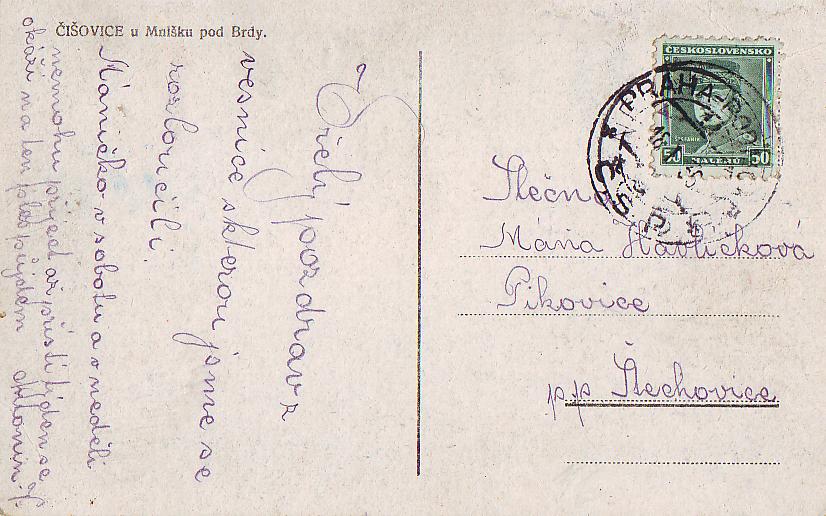 ČIŠOVICE u Mníšku pod Brdy.
Srdečný pozdrav z
vesnice s kterou jsme se
rozloučili.
Máničko v sobotu a v neděli
nemohu přijet až příští týden se
okáži na ten ples přijdem
ČESKOSLOVENSKO
ŠTEFÁNIK
50 HALÉŘŮ 50
PRAHA
Slečna
Mána Havlíčková
Pikovice
p.p Štechovice